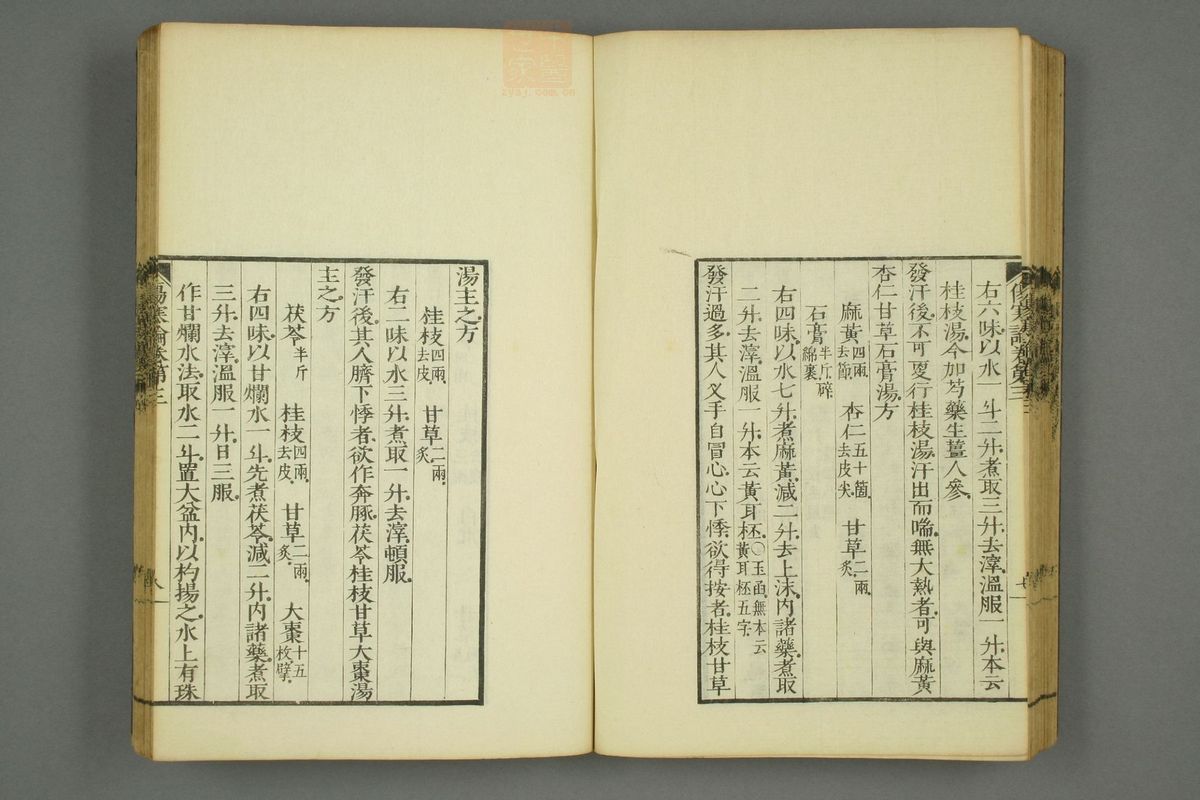 右六味以水一斗二升煮取三升去滓溫服一升本云
桂枝湯今加芍藥生薑人參
發汗後不可更行桂枝湯汗出而喘無大熱者可與麻黃
杏仁甘草石膏湯方
麻黃四兩去節 杏仁五十箇去皮尖 甘草二兩炙
石膏半斤碎綿裹
右四味以水七升煮麻黃減二升去上沫內諸藥煮取
二升去滓溫服一升本云黃耳柸○玉函無本云黃耳柸五字
發汗過多其人叉手自冒心心下悸欲得按者桂枝甘草
湯主之方
桂枝四兩去皮 甘草二兩炙
右二味以水三升煮取一升去滓頓服
發汗後其人臍下悸者欲作奔豚茯苓桂枝甘草大棗湯
主之方
茯苓半斤 桂枝四兩去皮 甘草二兩炙 大棗十五枚擘
右四味以甘爛水一斗先煮茯苓減二升內諸藥煮取
三升去滓溫服一升日三服
作甘爛水法取水二斗置大盆內以杓揚之水上有珠
傷寒論卷第三
八
zysj.com.cn